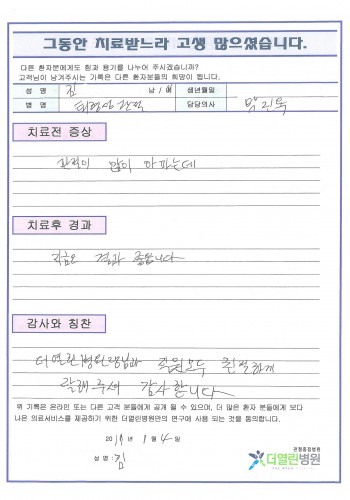 그동안 치료받느라 고생 많으셨습니다.
다른 환자분에게도 힘과 용기를 나누어 주시겠습니까?
고객님이 남겨주시는 기록은 다른 환자분들의 희망이 됩니다.
성 명 김 남 / 여 생년월일
병 명 퇴행성 관절 담당의사 박진욱
치료전 증상
관절이 많이 아파는데
치료후 경과
지금은 결과 좋읍니다
감사와 칭찬
더열린병원장님과 직원모두 친절하게
잘해주셔 감사합니다
위 기록은 온라인 또는 다른 고객 분들에게 공개 될 수 있으며, 더 많은 환자 분들에게 보다
나은 의료서비스를 제공하기 위한 더열린병원만의 연구에 사용 되는 것을 동의합니다.
2019년 1월 4일
성 명: 김
관절중점병원
더열린병원